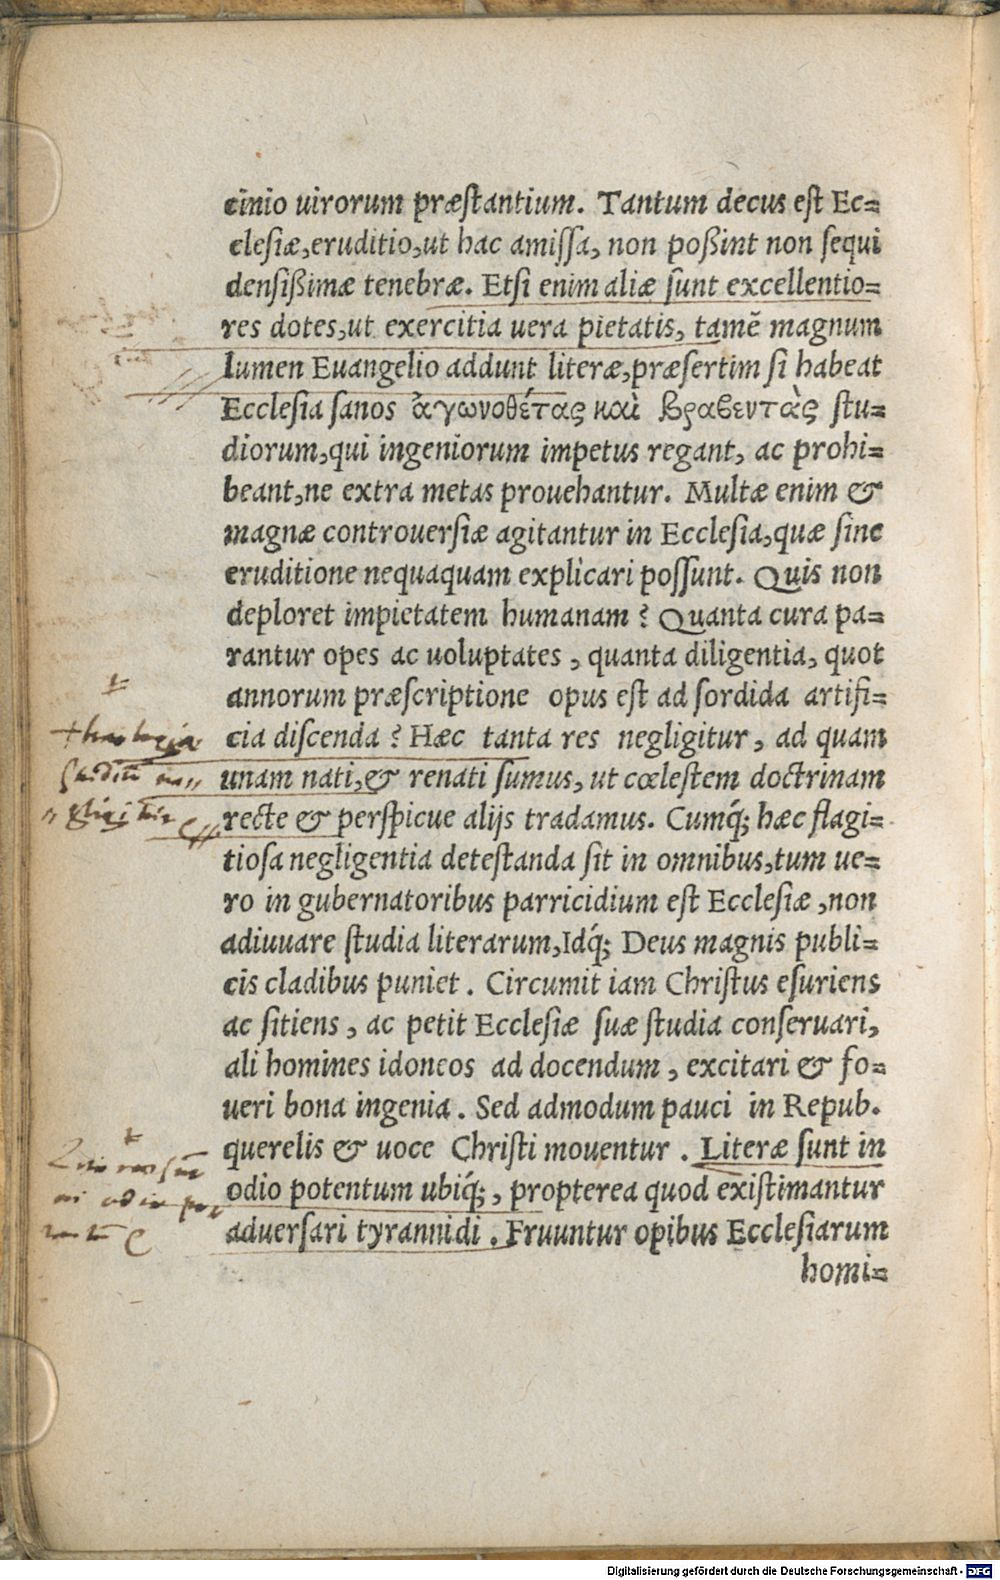 cinio uirorum præstantium. Tantum decus est Ec=
clesiæ, eruditio, ut hac amissa, non poßint non sequi
densißimæ tenebræ. Etsi enim aliæ sunt excellentio=
res dotes, ut exercitia uera pietatis, tamẽ magnum
lumen Euangelio addunt literæ, præsertim si habeat
Ecclesia sanos ἀγωνοθέτας καὶ βραβευτὰς stu=
diorum, qui ingeniorum impetus regant, ac prohi=
beant, ne extra metas prouehantur. Multæ enim &
magnæ controuersiæ agitantur in Ecclesia, quæ sine
eruditione nequaquam explicari possunt. Quis non
deploret impietatem humanam? Quanta cura pa=
rantur opes ac uoluptates, quanta diligentia, quot
annorum præscriptione opus est ad sordida artifi=
cia discenda? Hæc tanta res negligitur, ad quam
unam nati, & renati sumus, ut cœlestem doctrinam
recte & perspicue alijs tradamus. Cumq́; hæc flagi=
tiosa negligentia detestanda sit in omnibus, tum ue=
ro in gubernatoribus parricidium est Ecclesiæ, non
adiuuare studia literarum, Idq́; Deus magnis publi=
cis cladibus puniet. Circumit iam Christus esuriens
ac sitiens, ac petit Ecclesiæ suæ studia conseruari,
ali homines idoneos ad docendum, excitari & fo=
ueri bona ingenia. Sed admodum pauci in Repub.
querelis & uoce Christi mouentur. Literæ sunt in
odio potentum ubiq́;, propterea quod existimantur
aduersari tyrannidi. Fruuntur opibus Ecclesiarum
homi=
theologiæ
odio
Digitalisierung gefördert durch die Deutsche Forschungsgemeinschaft - DFG